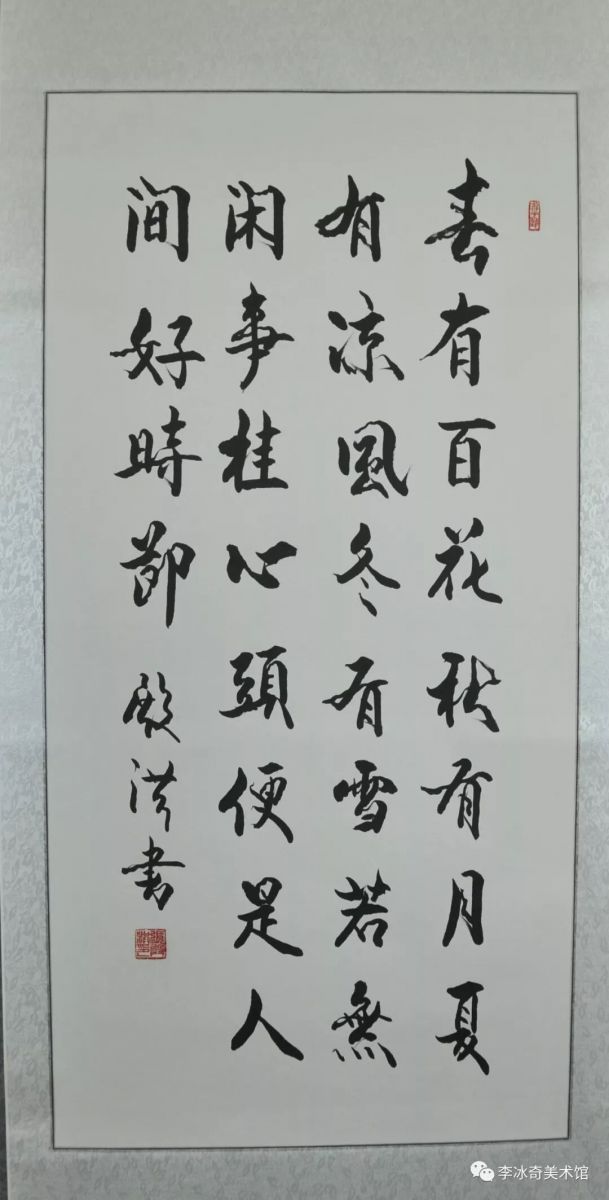 春有百花秋有月夏
有凉風冬有雪若無
闲事桂心頭便是人
间好時節
殿洪书
李冰奇美术馆